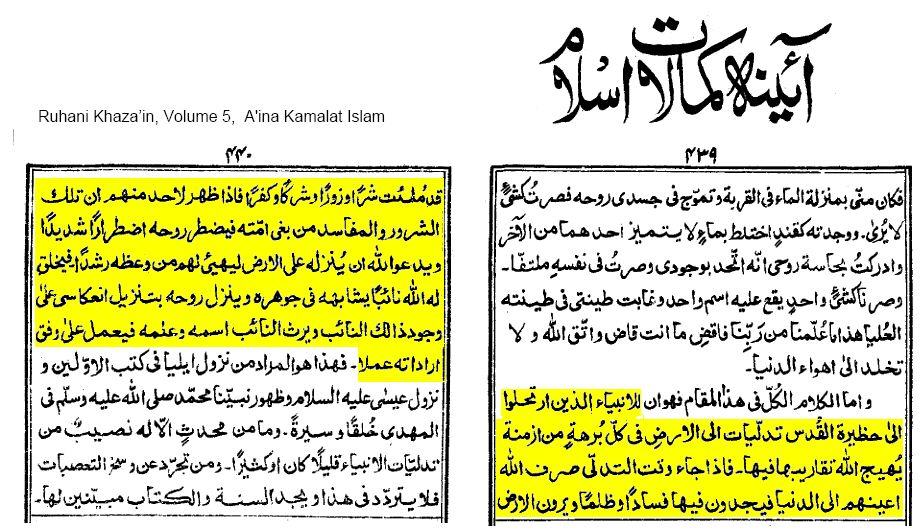 آئینہ کمالات اسلام
Ruhani Khaza’in, Volume 5, A'ina Kamalat Islam
۴۳۹
فكان منّى بمنزلة الماء فى القربة وتموّج فى جسدى روحه فصرتُ كشىءٍ
لا يُرىٰ۔ ووجدته كقندٍ اختلط بماءٍ لا يتميز احدهما من الآخر
وادركتُ بحاسة روحى انّه اتّحد بوجودى وصرتُ فى نفسهٖ ملتفّا۔
وصرنا كشىءٍ واحدٍ يقع عليه اسم واحد وغابت طينتى فى طينته
العُليا هذا ما عُلّمنا من ربّنا فاقضِ ما انت قاض واتّق الله ولا
تخلد الىٰ اهواء الدنيا۔
واما الكلام الكُلّ فى هذا المقام فهو ان للانبياء الذين ارتحلوا
الىٰ حظيرة القُدس تدلّيات الى الارض فى كلّ بُرهةٍ من ازمنة
يُهيج الله تقاريبها فيها۔ فاذا جاء وقت التدلّى صرف الله
اعينهم الى الدنيا فيجدون فيها فسادًا وظلمًا ويرون الارض
۴۴۰
قد مُلئت شرًا وزورًا وشركًا وكفرًا فاذا ظهر لاحد منهم ان تلك
الشرور والمفاسد من بغى امّته فيضطر روحه اضطرارًا شديدًا
ويدعو الله ان يُنزله على الارض ليهيئ لهم من وعظه رشدًا فيخلق
له الله نائبًا يشابهه فى جوهره وينزل روحه بتنزيل انعكاسى علىٰ
وجود ذالك النائب ويرث النائب اسمه وعلمه فيعمل علىٰ وفق
اراداته عملا۔ فهذا هو المراد من نزول ايليا فى كتب الاوّلين و
نزول عيسٰى عليه السلام وظهور نبيّنا محمّد صلى الله عليه وسلّم فى
المهدى خُلقًا وسيرةً۔ وما من محدثٍ الّا له نصيبٌ من
تدليّات الانبياء قليلًا كان اوكثيرًا۔ ومن تجرّد عن وسخ التعصبات
فلا يتردّد فى هذا ويجد السنة والكتاب مبيّنين لها۔